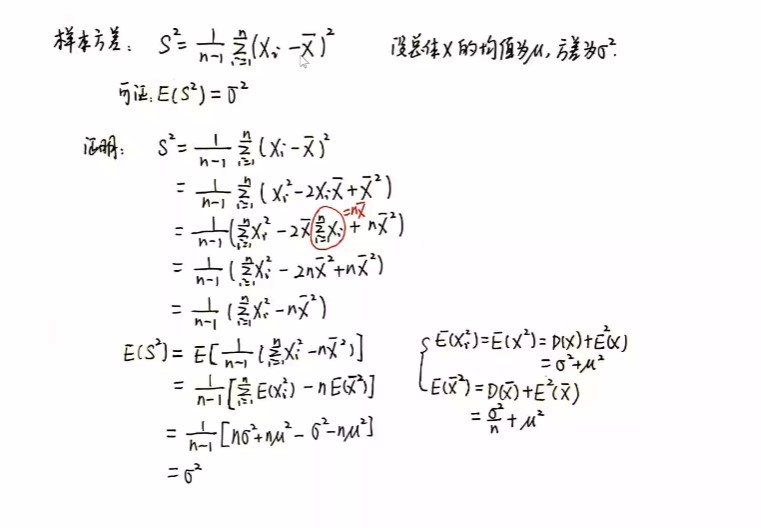 样本方差: S²=1/(n-1) Σ_{i=1}^{n}(X_i-X̄)² 设总体X的均值为μ,方差为σ².
可证:E(S²)=σ²
证明: S²=1/(n-1) Σ_{i=1}^{n}(X_i-X̄)²
=1/(n-1) Σ_{i=1}^{n}(X_i²-2X_iX̄+X̄²)
=1/(n-1)(Σ_{i=1}^{n}X_i²-2X̄Σ_{i=1}^{n}X_i+nX̄²)
=nX̄
=1/(n-1)(Σ_{i=1}^{n}X_i²-2nX̄²+nX̄²)
=1/(n-1)(Σ_{i=1}^{n}X_i²-nX̄²)
E(S²)=E[1/(n-1)(Σ_{i=1}^{n}X_i²-nX̄²)]
=1/(n-1)[Σ_{i=1}^{n}E(X_i²)-nE(X̄²)]
=1/(n-1)[nσ²+nμ²-σ²-nμ²]
=σ²
{E(X_i²)=E(X²)=D(X)+E²(X)
=σ²+μ²
E(X̄²)=D(X̄)+E²(X̄)
=σ²/n+μ²